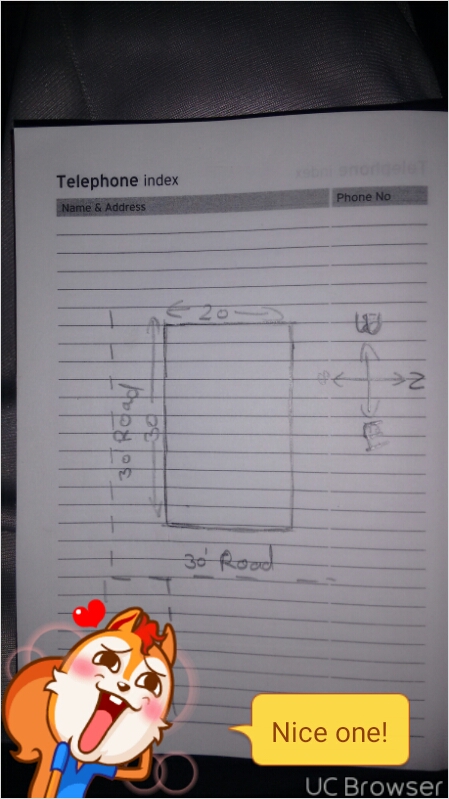 Telephone index
Name & Address
Phone No
20
30
30' Road
N
30' Road
Nice one!
UC Browser